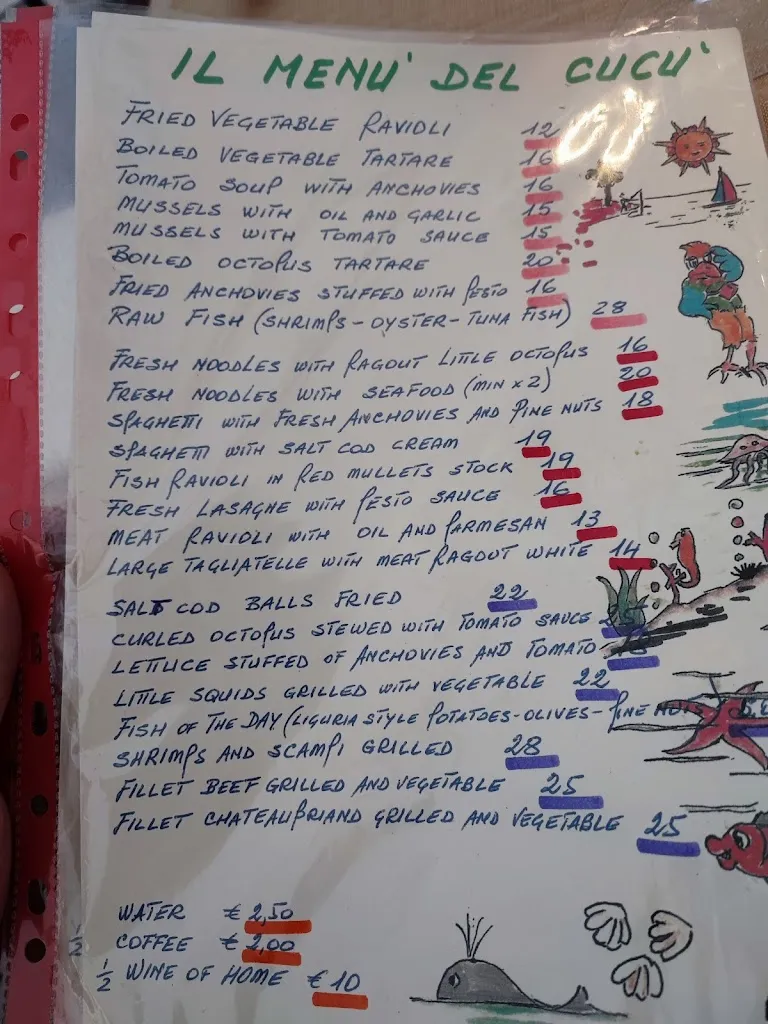 IL MENU' DEL CUCU'
FRIED VEGETABLE RAVIOLI 12
BOILED VEGETABLE TARTARE 16
TOMATO SOUP WITH ANCHOVIES 16
MUSSELS WITH OIL AND GARLIC 15
MUSSELS WITH TOMATO SAUCE 15
BOILED OCTOPUS TARTARE 20
FRIED ANCHOVIES STUFFED WITH PESTO 16
RAW FISH (SHRIMPS-OYSTER-TUNA FISH) 28
FRESH NOODLES WITH RAGOUT LITTLE OCTOPUS 16
FRESH NOODLES WITH SEAFOOD (MIN X 2) 20
SPAGHETTI WITH FRESH ANCHOVIES AND PINE NUTS 18
SPAGHETTI WITH SALT COD CREAM 19
FISH RAVIOLI IN RED MULLETS STOCK 19
FRESH LASAGNE WITH PESTO SAUCE 16
MEAT RAVIOLI WITH OIL AND PARMESAN 13
LARGE TAGLIATELLE WITH MEAT RAGOUT WHITE 14
SALT COD BALLS FRIED 22
CURLED OCTOPUS STEWED WITH TOMATO SAUCE
LETTUCE STUFFED OF ANCHOVIES AND TOMATO
LITTLE SQUIDS GRILLED WITH VEGETABLE 22
FISH OF THE DAY (LIGURIA STYLE POTATOES-OLIVES-PINE NUTS)
SHRIMPS AND SCAMPI GRILLED 28
FILLET BEEF GRILLED AND VEGETABLE 25
FILLET CHATEAUBRIAND GRILLED AND VEGETABLE 25
WATER € 2,50
1/2 COFFEE € 2,00
1/2 WINE OF HOME € 10